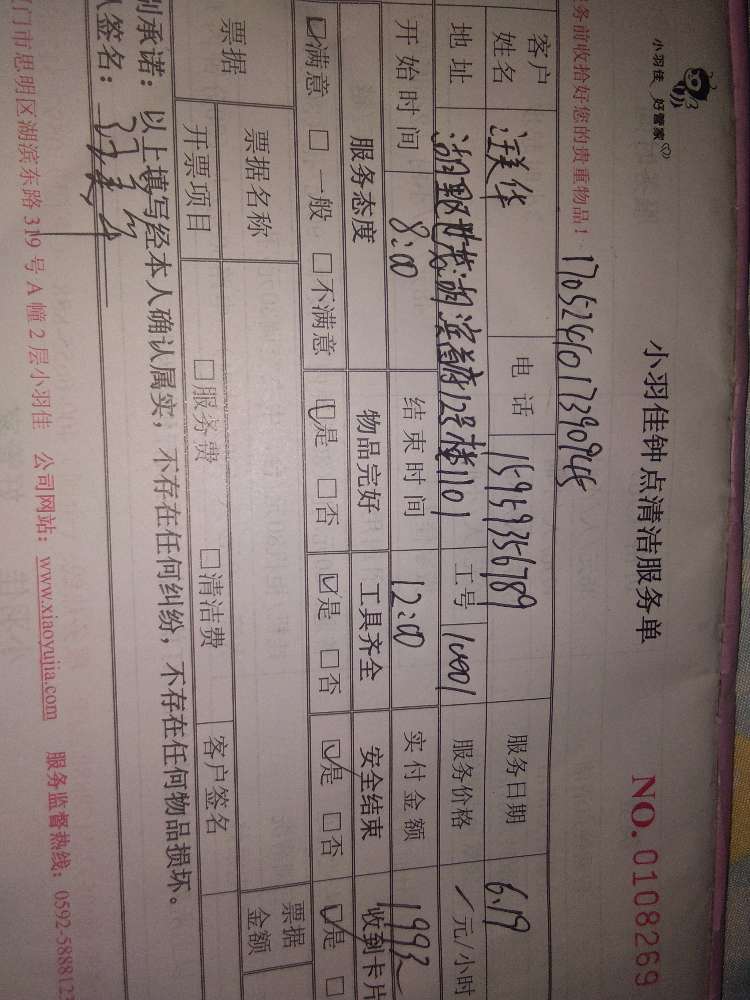 小羽佳 好管家
小羽佳钟点清洁服务单 NO. 0108269
务前收拾好您的贵重物品！ 1705246017390945
客户姓名 汪美华 电话 15959356789 服务日期 6.19
地址 湖滨首府12号楼1101 工号 服务价格 / 元/小时
开始时间 8:00 结束时间 12:00 实付金额
服务态度 物品完好 工具齐全 安全结束 收到卡片
☑满意 □一般 □不满意 ☑是 □否 ☑是 □否 ☑是 □否 ☑是 □
票据 票据名称 票据金额
开票项目 □服务费 □清洁费 客户签名
别承诺：以上填写经本人确认属实，不存在任何纠纷，不存在任何物品损坏。
人签名：汪美华
门市思明区湖滨东路319号A幢2层小羽佳 公司网站：www.xiaoyujia.com 服务监督热线：0592-588812